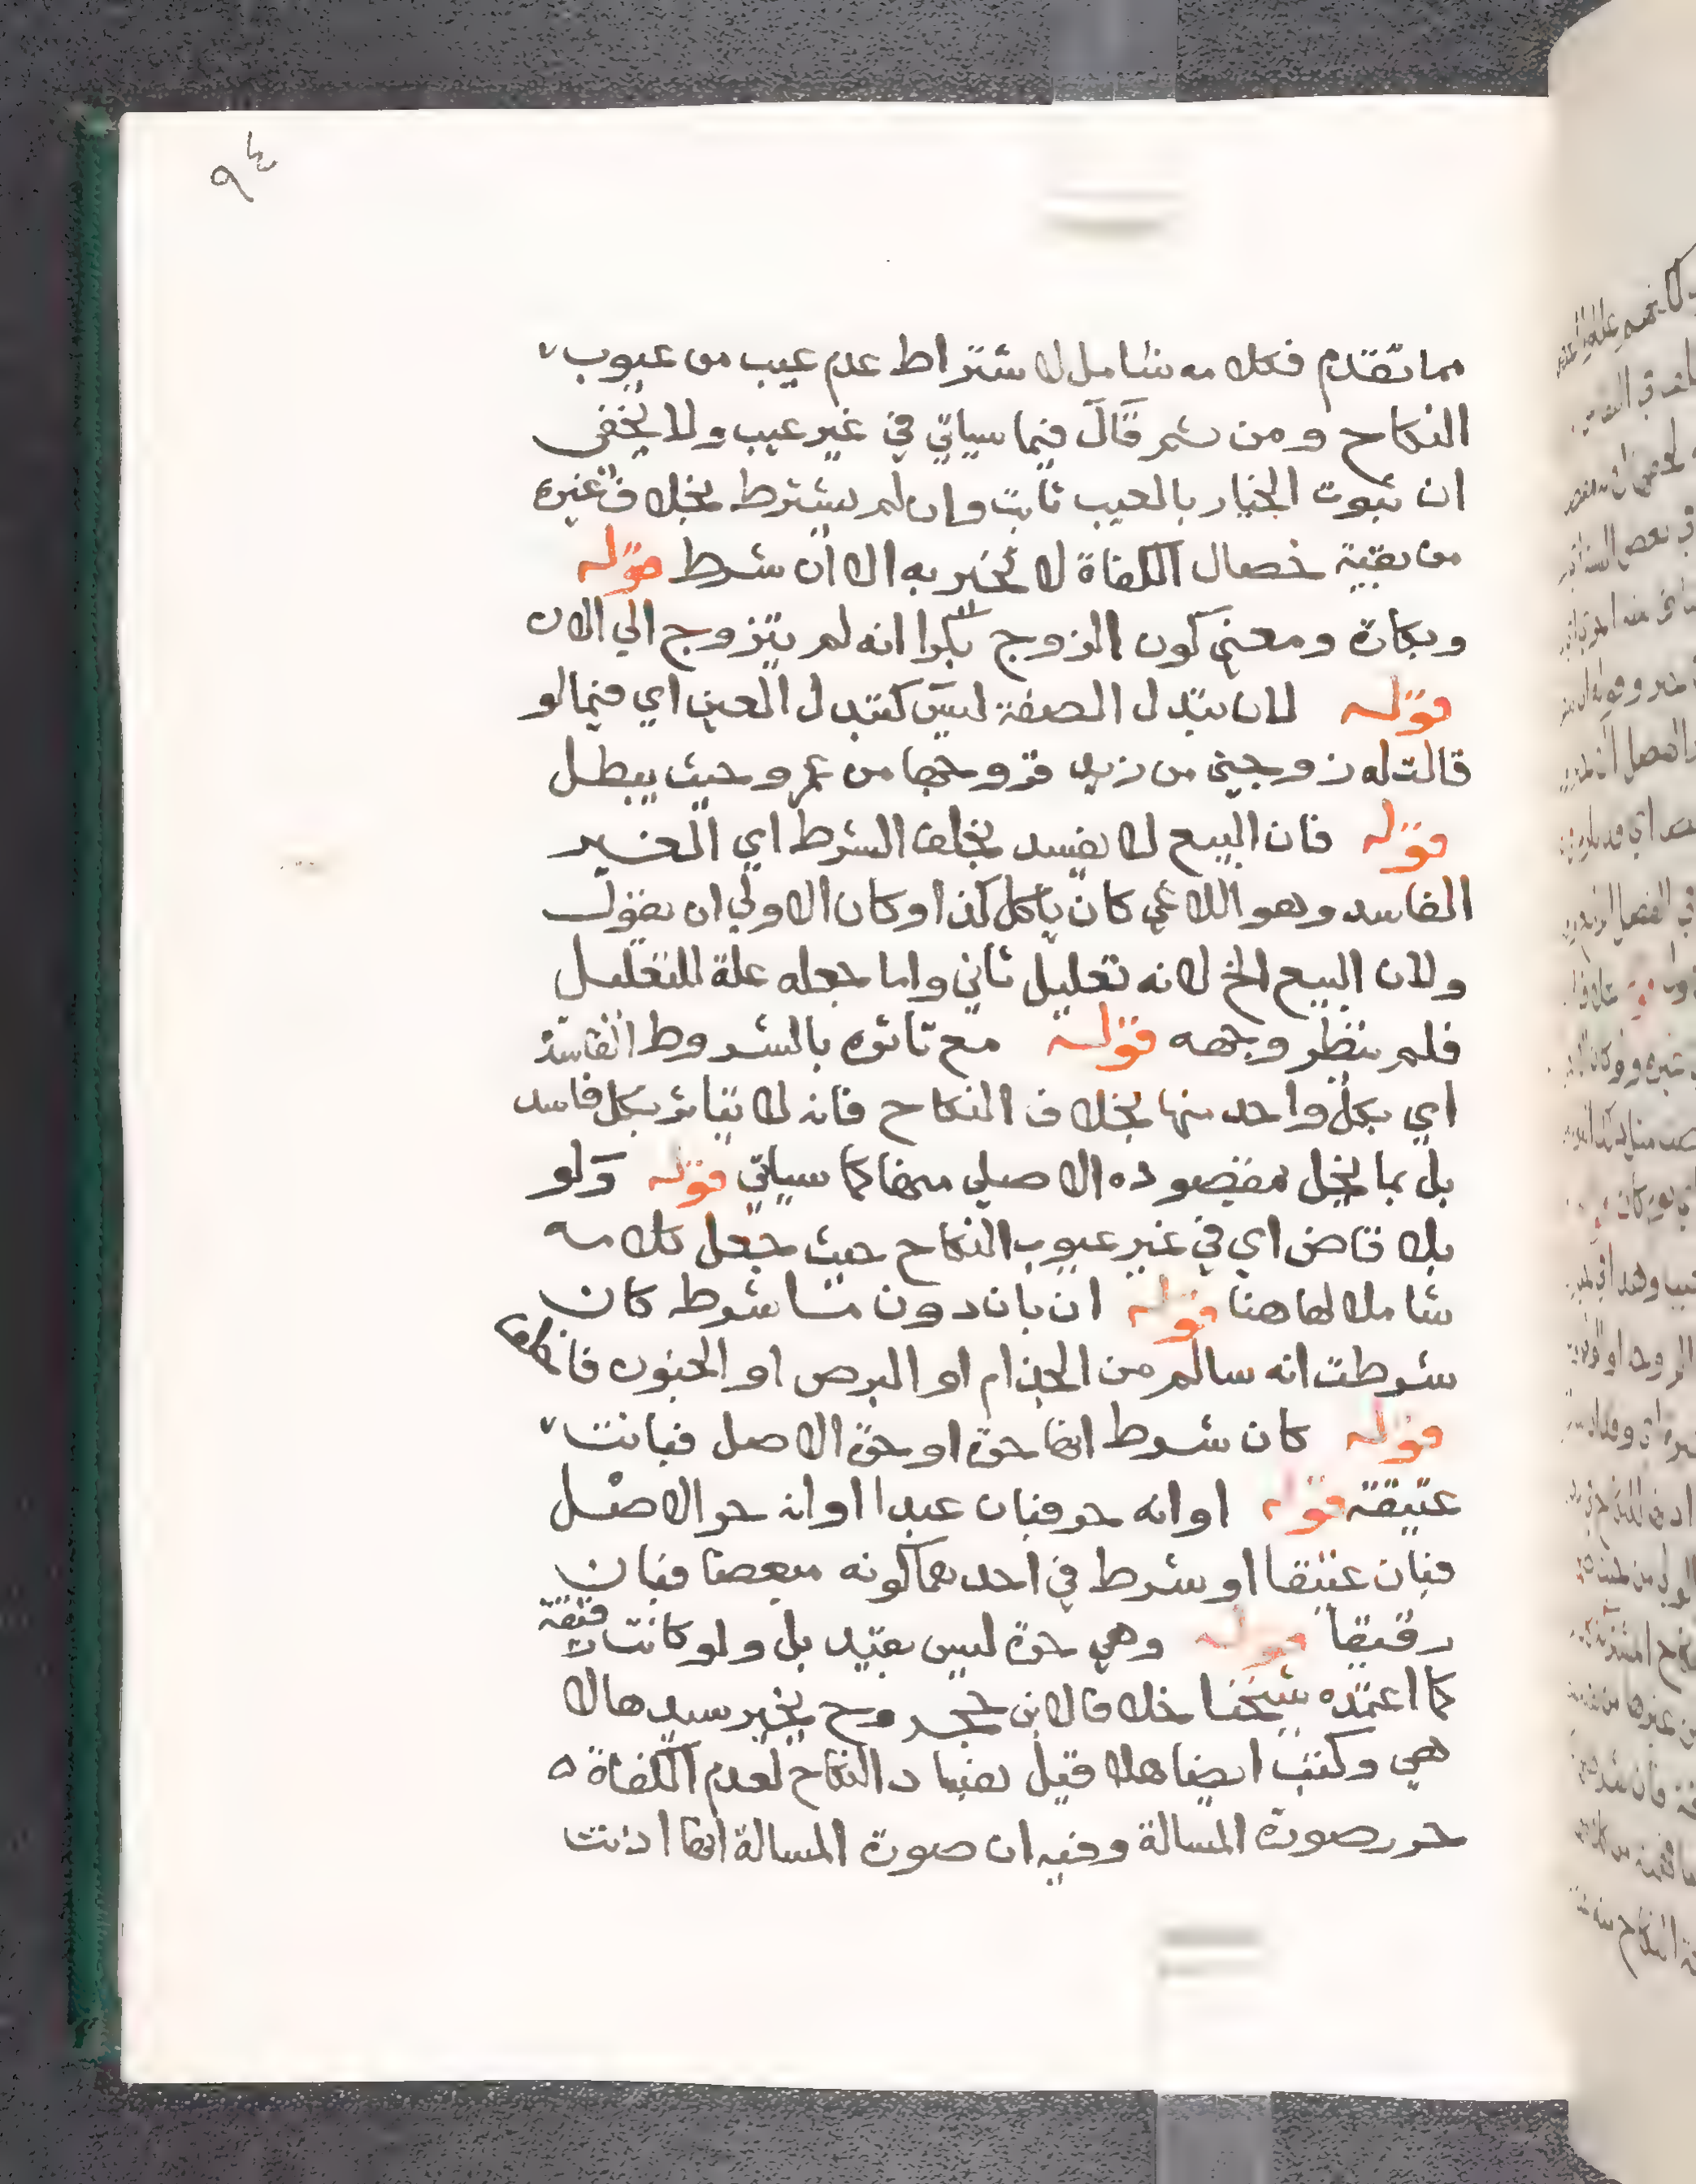 ٩٤
مما تقدم فكلامه شامل لاشتراط عدم عيب من عيوب
النكاح ومن ثم قال فيما سياتي في غير عيب ولا يخفى
ان ثبوت الخيار بالعيب ثابت وان لم يشترط بخلاف غيره
من بقية خصال الكفاة لا يخير به الا ان شرط قوله
وبكارة ومعني كون الزوج بكرا انه لم يتزوج الي الان
قوله لان تبدل الصفة ليس كتبدل العين اي فيما لو
قالت له زوجيني من زيد فزوجها من عمرو حيث يبطل
قوله فان البيع لا يفسد بخلف الشرط اي الغير
الفاسد وهو الاعمي كان ياكل كذا وكان الاولي ان يقول
ولان البيع الخ لانه تعليل ثاني واما جعله علة للتعليل
فلم ينظر وجهه قوله مع تاثره بالشروط الفاسدة
اي بكل واحد منها بخلاف النكاح فانه لا يتاثر بكل فاسد
بل بما يخل بمقصوده الاصلي منها كما سياتي قوله ولو
بلا قاض اي في غير عيوب النكاح حيث جعل كلامه
شاملا لها هنا قوله ان بان دون ما شرط كان
شرطت انه سالم من الجذام او البرص او الجنون فاخلف
قوله كان شرط انها حرة او حرة الاصل فبانت
عتيقة قوله او انه حر فبان عبدا او انه حر الاصل
فبان عتيقا او شرط في احدهما كونه مبعضا فبان
رقيقا قوله وهي حرة ليس بقيد بل ولو كانت رقيقة
كما اعتمده شيخنا خلافا لابن حجر وح يخير سيدها لا
هي وكتب ايضا هلا قيل بفساد النكاح لعدم الكفاة ه
حرر صورة المسالة وفيه ان صورة المسالة انها اذنت